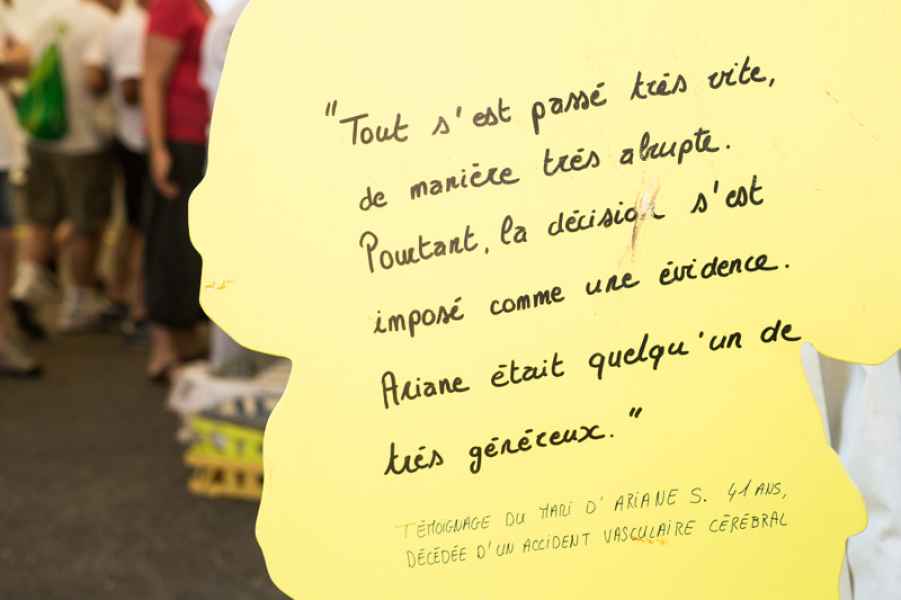 "Tout s'est passé très vite,
de manière très abrupte.
Pourtant, la décision s'est
imposé comme une évidence.
Ariane était quelqu'un de
très généreux."
TÉMOIGNAGE DU MARI D'ARIANE S. 41 ANS,
DÉCÉDÉE D'UN ACCIDENT VASCULAIRE CÉRÉBRAL